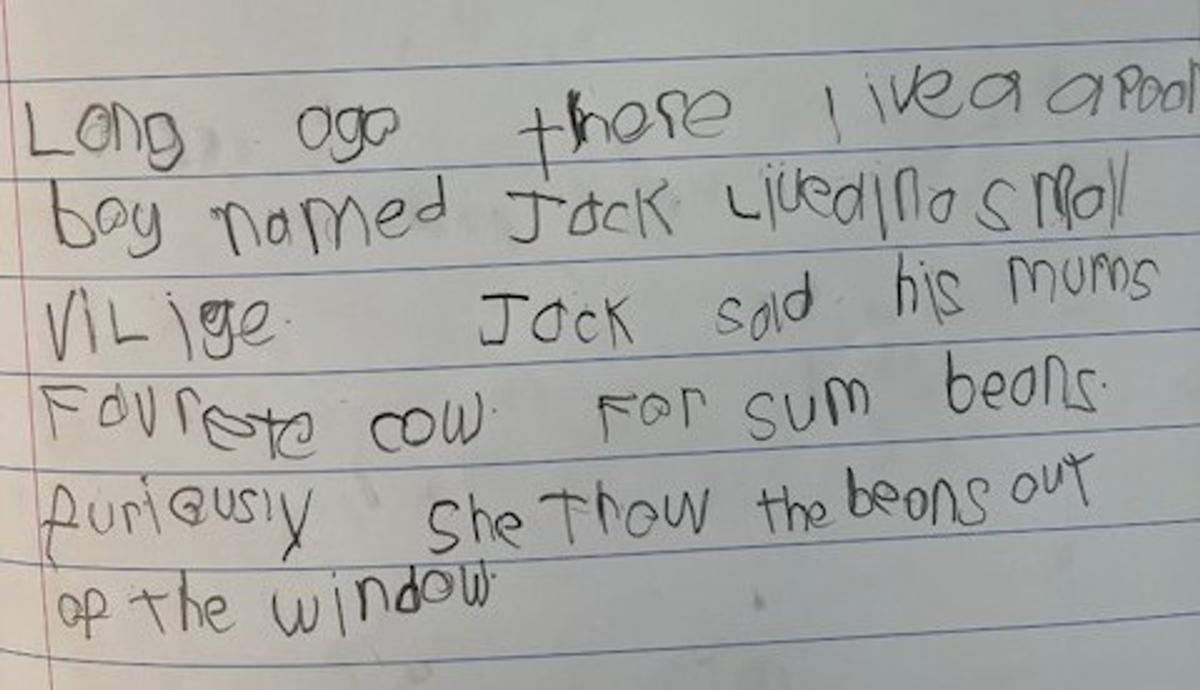 Long ago there livea a poor
boy named Jack Lived in a small
ViLige Jack sold his mums
Favrete cow. For sum beans.
furiously she Thow the beans out
of the window.